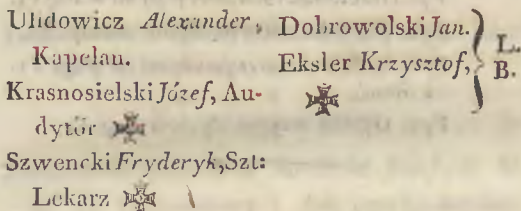 Ulidowicz Alexander,
Kapelan.
Krasnosielski Józef, Au-
dytór
Szwencki Fryderyk, Szt:
Lekarz
Dobrowolski Jan.
Eksler Krzysztof,
L.
B.